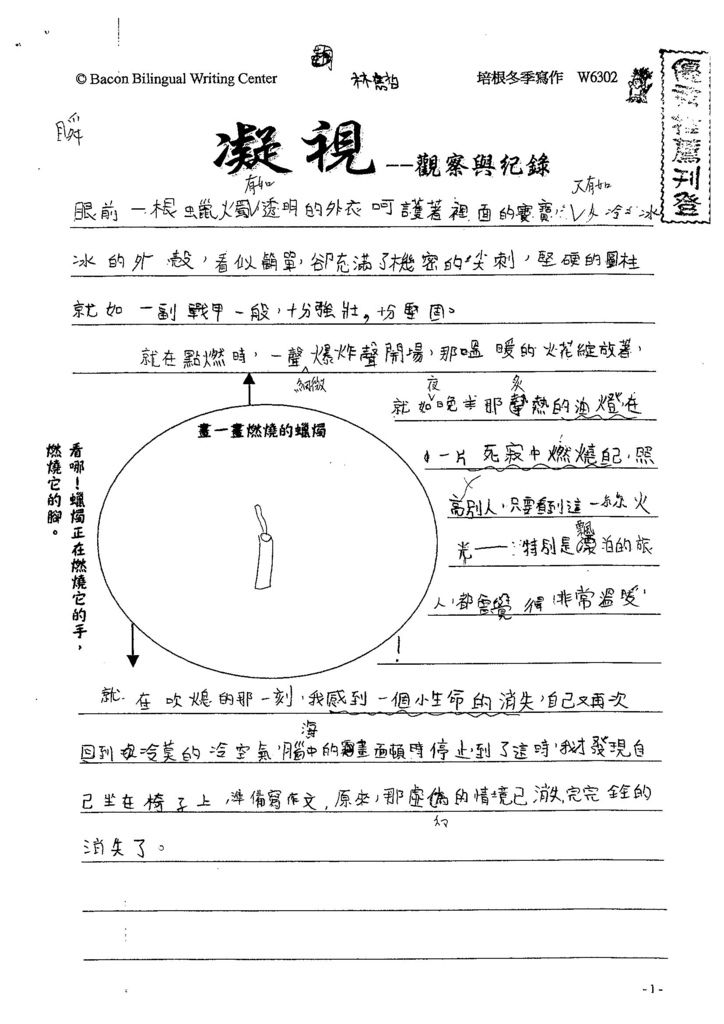 © Bacon Bilingual Writing Center
培根冬季寫作 W6302
優秀推薦刊登
瞬
凝視 --觀察與紀錄
有如 又有如
眼前一根蠟燭,透明的外衣呵護著裡面的寶寶,冷冰
冰的外殼,看似簡單,卻充滿了機密的尖刺,堅硬的圓柱
就如一副戰甲一般,十分強壯,十分堅固。
就在點燃時,一聲爆炸聲開場,那溫暖的火花綻放著,
細微
夜 炙
就如晚半那熱的油燈在
一片死寂中燃燒自己,照
別人,只要看到這一絲火
飄
光——特別是泊的旅
人,都會覺得非常溫暖,
!
畫一畫燃燒的蠟燭
看哪!蠟燭正在燃燒它的手,
燃燒它的腳。
就在吹熄的那一刻,我感到一個小生命的消失,自己又再次
海
回到冷莫的冷空氣,腦中的畫面頓時停止,到了這時,我才發現自
己坐在椅子上,準備寫作文,原來,那虛的情境已消失,完完全的
幻
消失了。
-1-